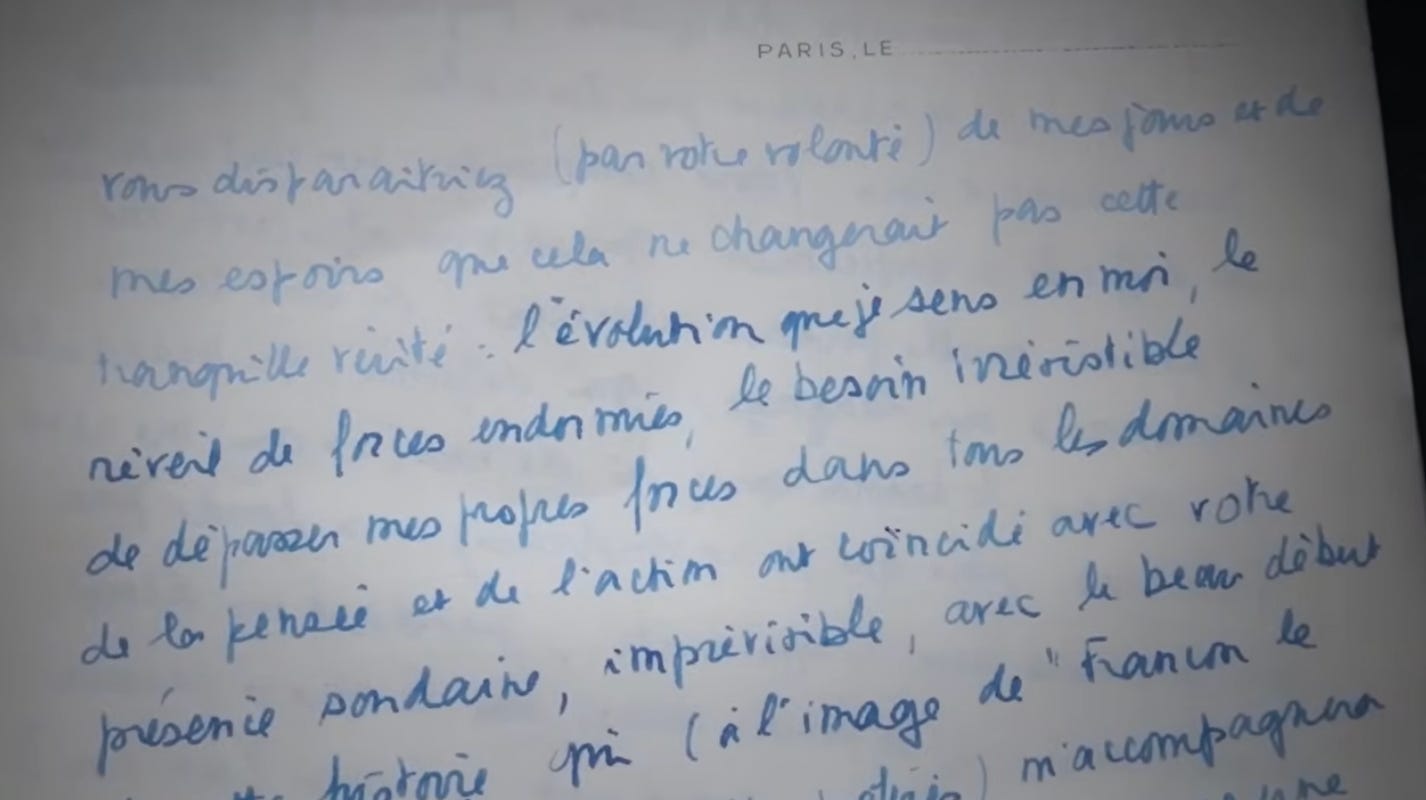 PARIS, LE
vous disparaitriez (par votre volonté) de mes jours et de
mes espoirs que cela ne changerait pas cette
tranquille vérité : l'évolution que je sens en moi, le
réveil de forces endormies, le besoin irrésistible
de dépasser mes propres forces dans tous les domaines
de la pensée et de l'action ont coïncidé avec votre
présence soudaine, imprévisible, avec le beau début
histoire qui (à l'image de "Francon le
m'accompagnera